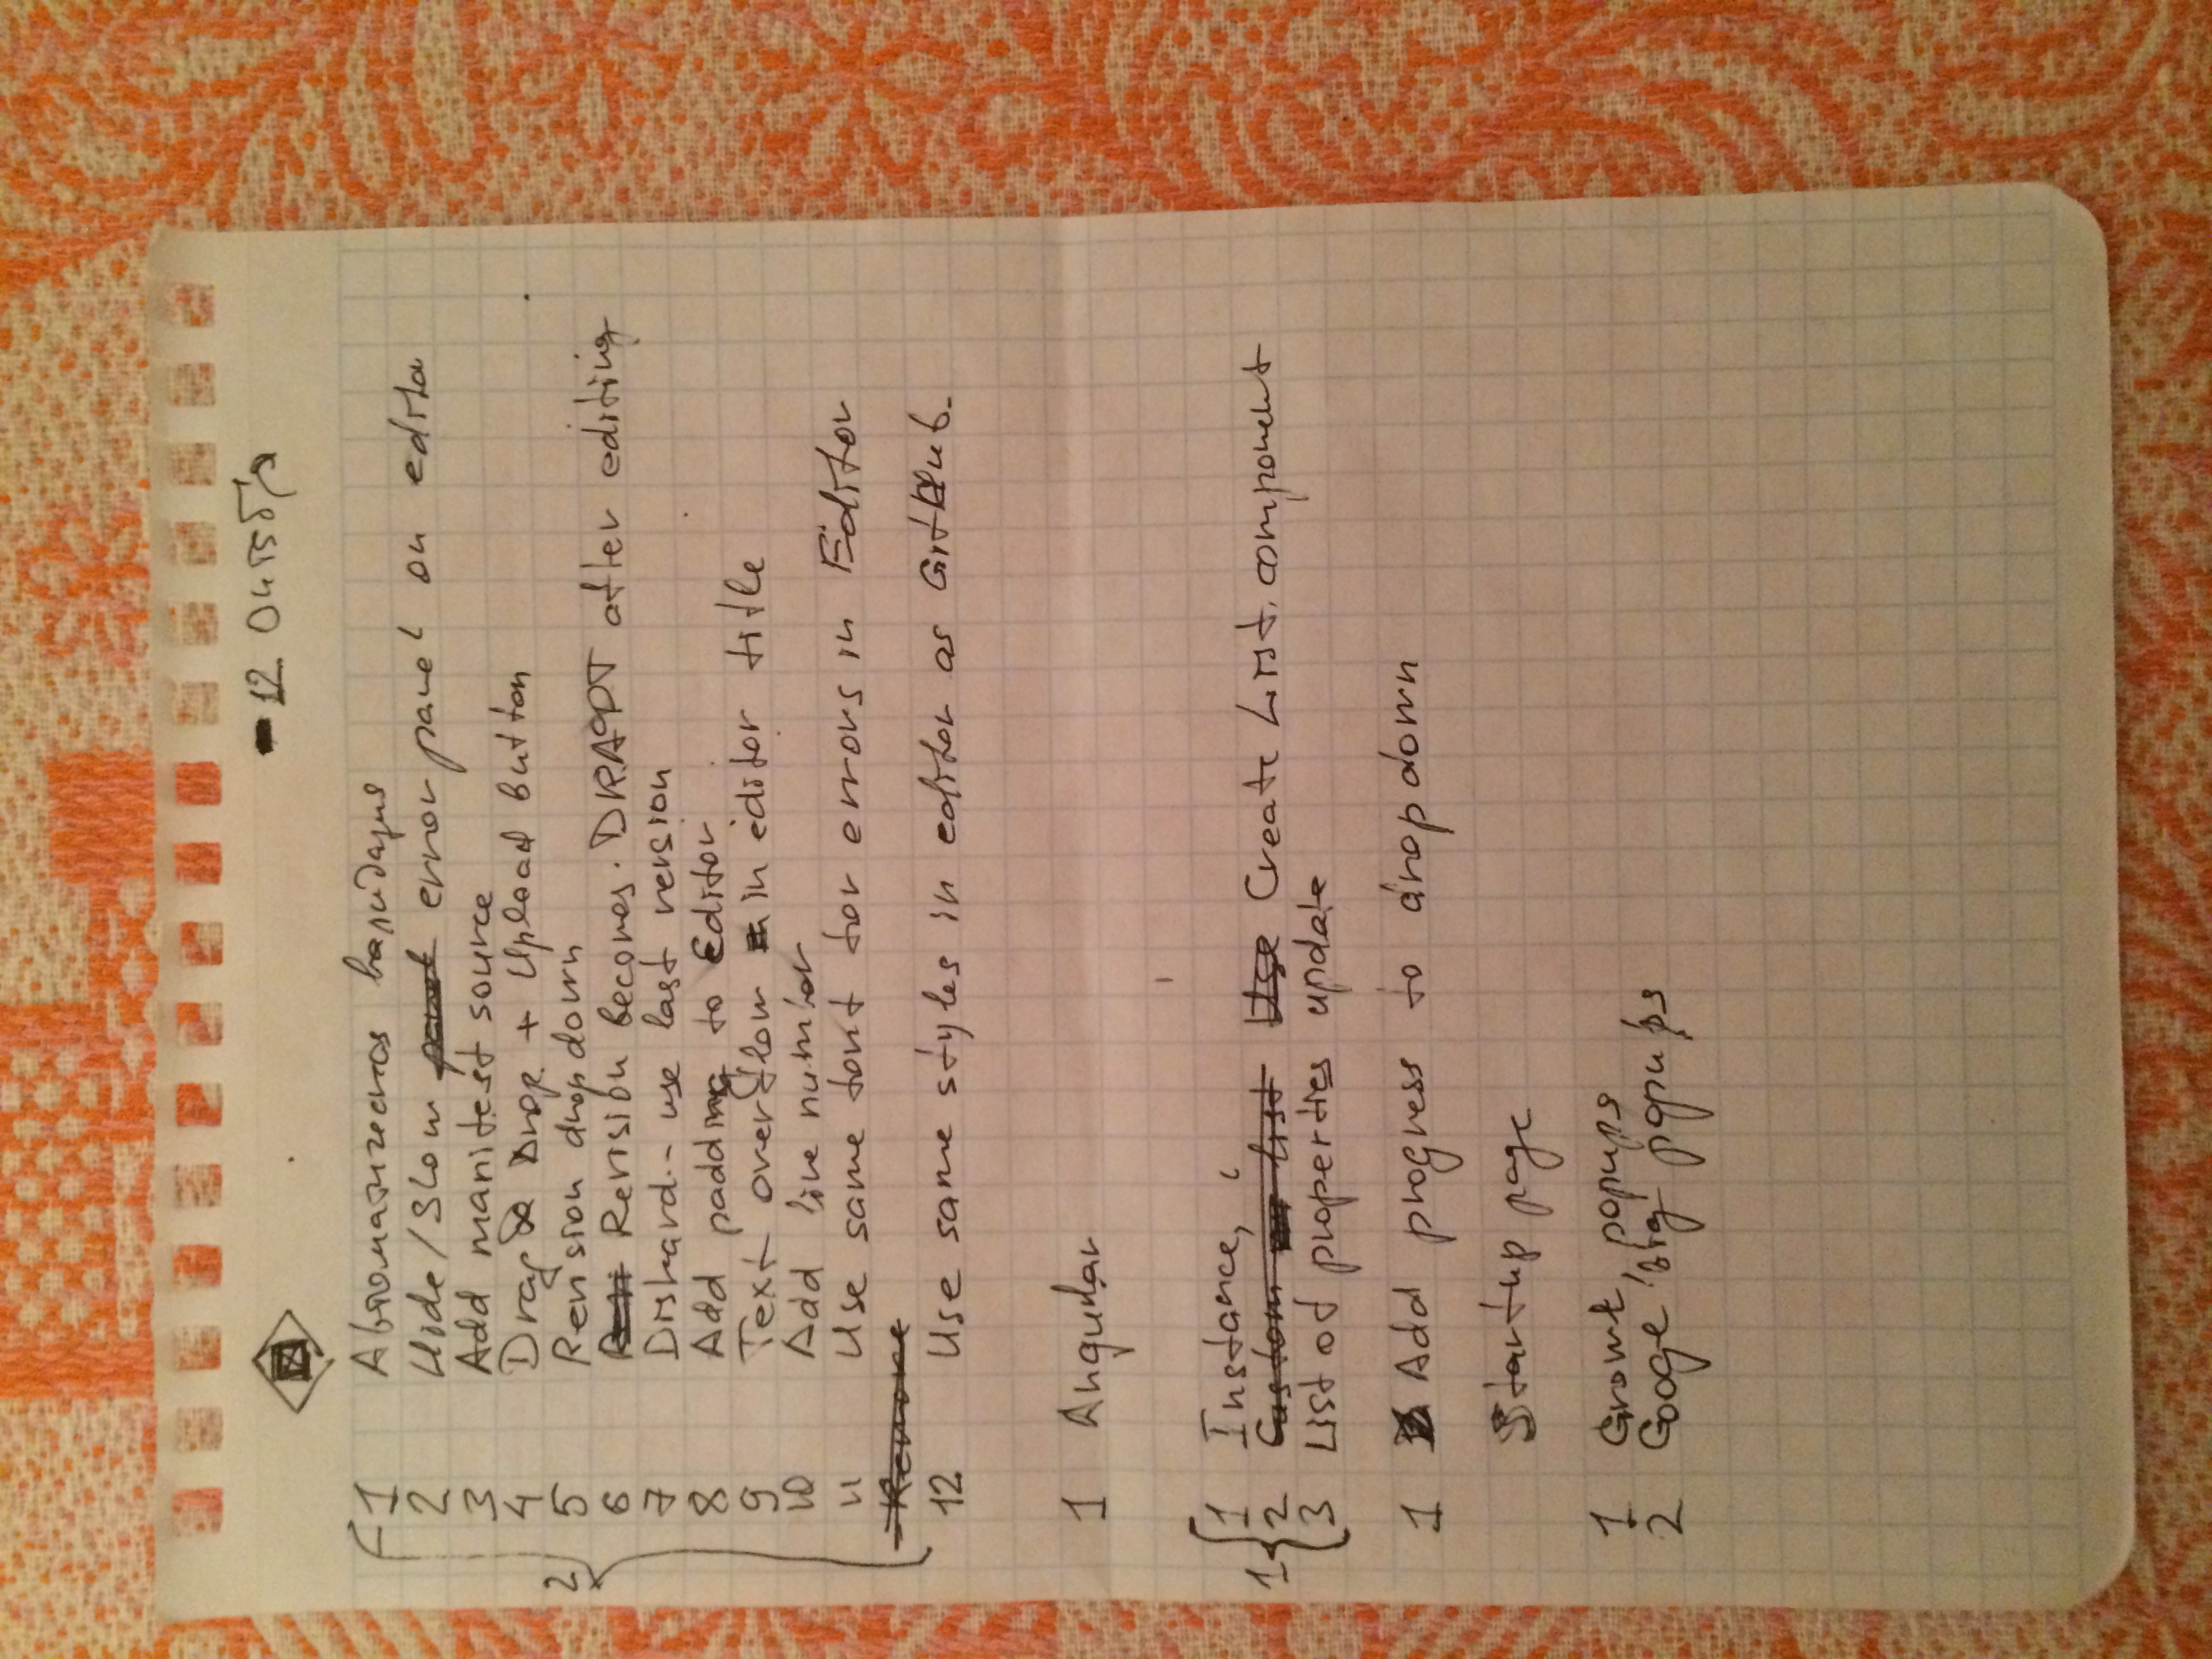 12 Октября
1 Автоматическая валидация
2 Hide/Show panel error panel on edito
3 Add manifest source
4 Drag & Drop + Upload button
5 Revision dropdown
6 Revision becomes DRAFT after editing
7 Diskard - use last version
8 Add padding to Editor
9 Text overflow in editor title
10 Add line number
11 Use same font for errors in Editor
Remove
2
12 Use same styles in editor as GitHub.
1 Angular
1 Instance,
2 Custom list Use Create List component
3 List of properties update
1
1 Add progress to dropdown
Startup page
1 Growt, popups
2 Googe big popups